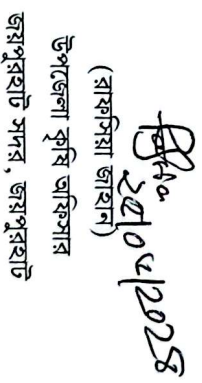 (রাফসিয়া জাহান)
উপজেলা কৃষি অফিসার
জয়পুরহাট সদর, জয়পুরহাট